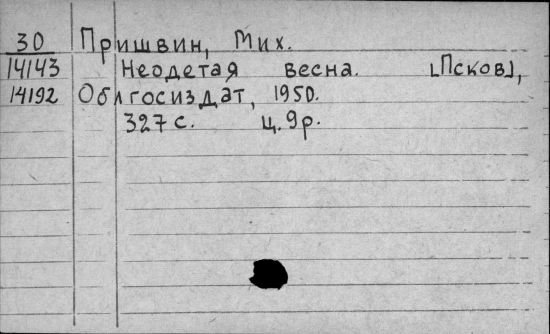 30 Пришвин, Мих.
14143 Неодетая весна. [Псков],
14192 Облгосиздат, 1950.
327 с. ц. 9р.